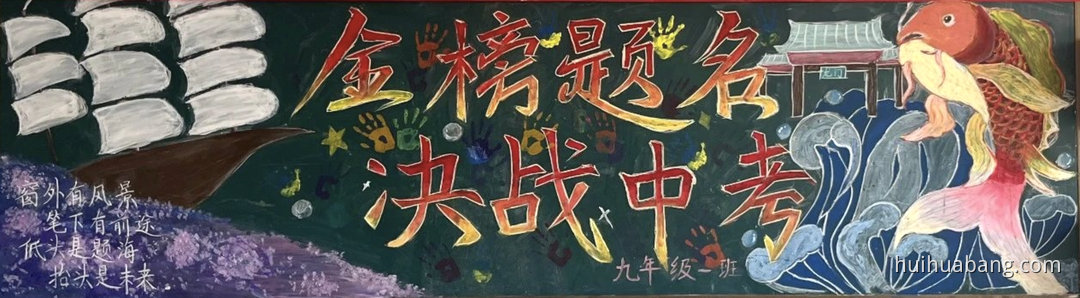 金榜题名
决战中考
窗外有风景
笔下有前途
低头是题海
抬头是未来
九年级一班
huihuabang.com